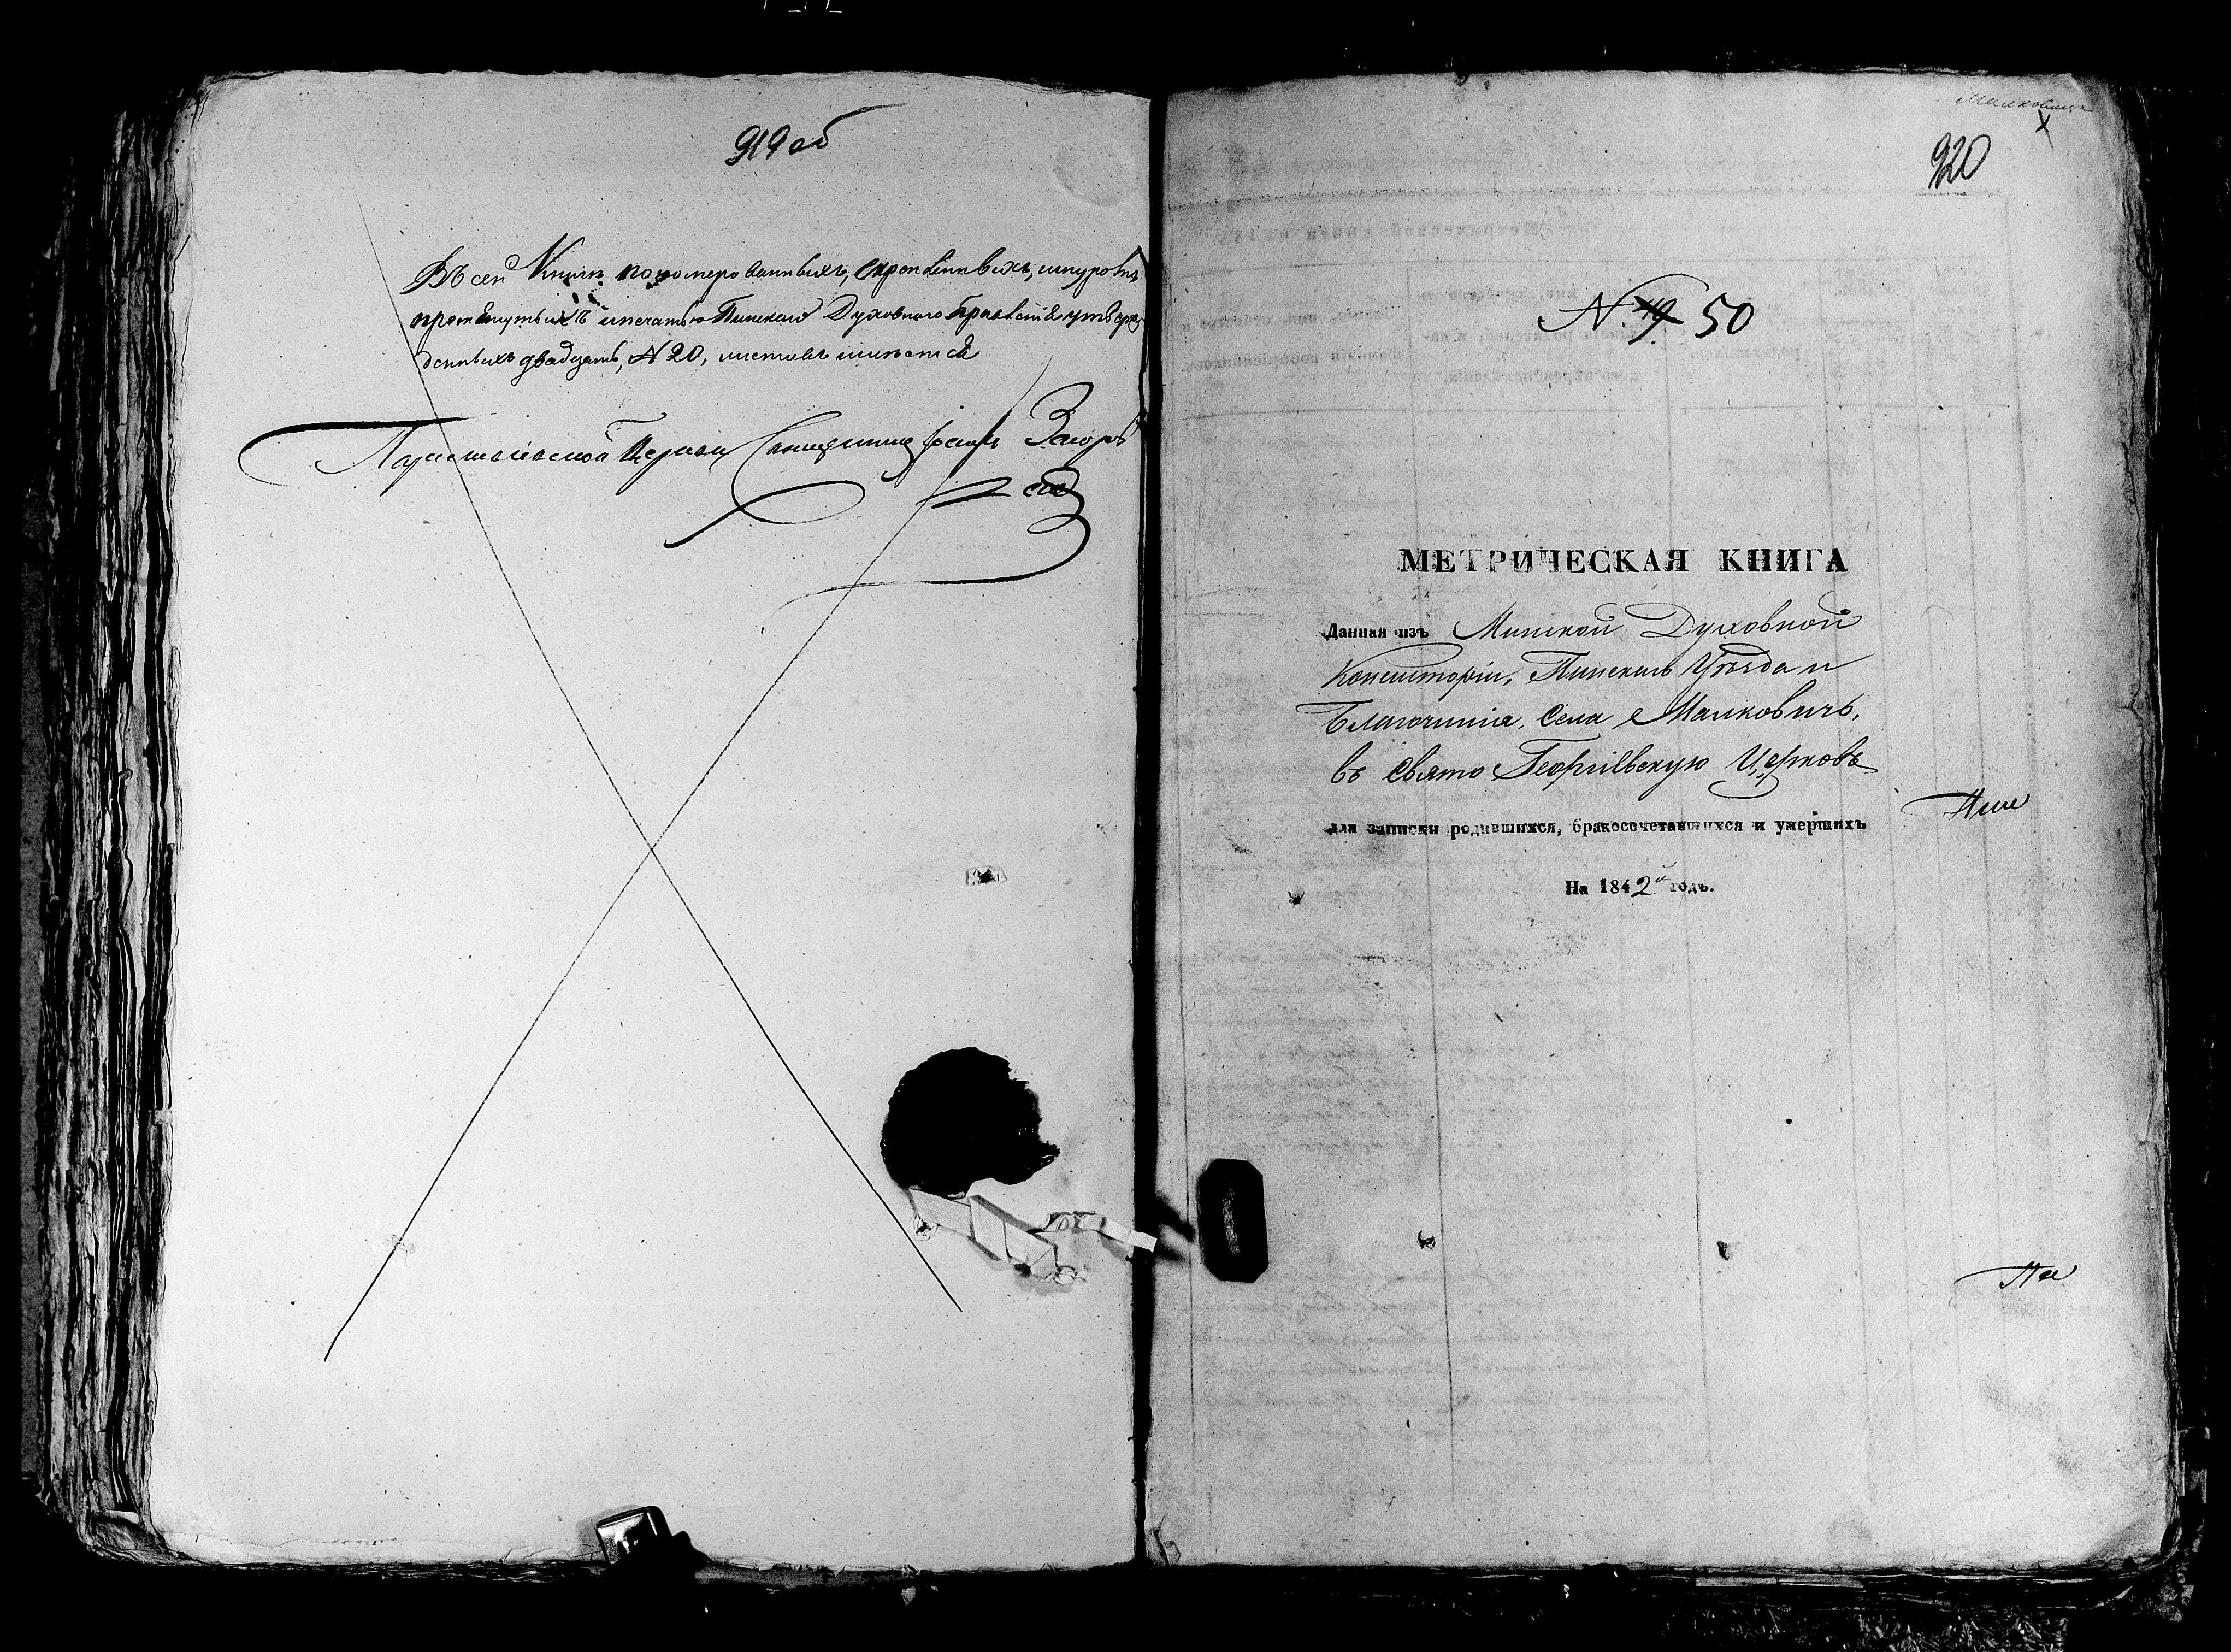 919 об
Въ сей Книгѣ пономерованныхъ, скрепленныхъ, шнуромъ
протянутыхъ и печатью Пинскаго Духовнаго Правленія утверж
денныхъ двадцать, N 20, листовъ имѣется
Церкви Священник Загоров
ский
Малковичи
X
920
N. 49 50
МЕТРИЧЕСКАЯ КНИГА
Данная изъ Минской Духовной
Консисторіи, Пинскаго Уѣзда и
Благочинія, Села Малковичъ,
въ Свято Георгіевскую Церковь
для записки родившихся, бракосочетавшихся и умершихъ
На 1842й годъ.